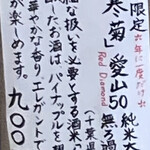 限定 六年に一度だけ出
寒菊 愛山50 純米大
Red Diamond
無ろ過
(千葉県
な扱いを必要とする
したお酒は、パイナップルを想
華やかな香り エレガントで
が楽しめます。九〇〇